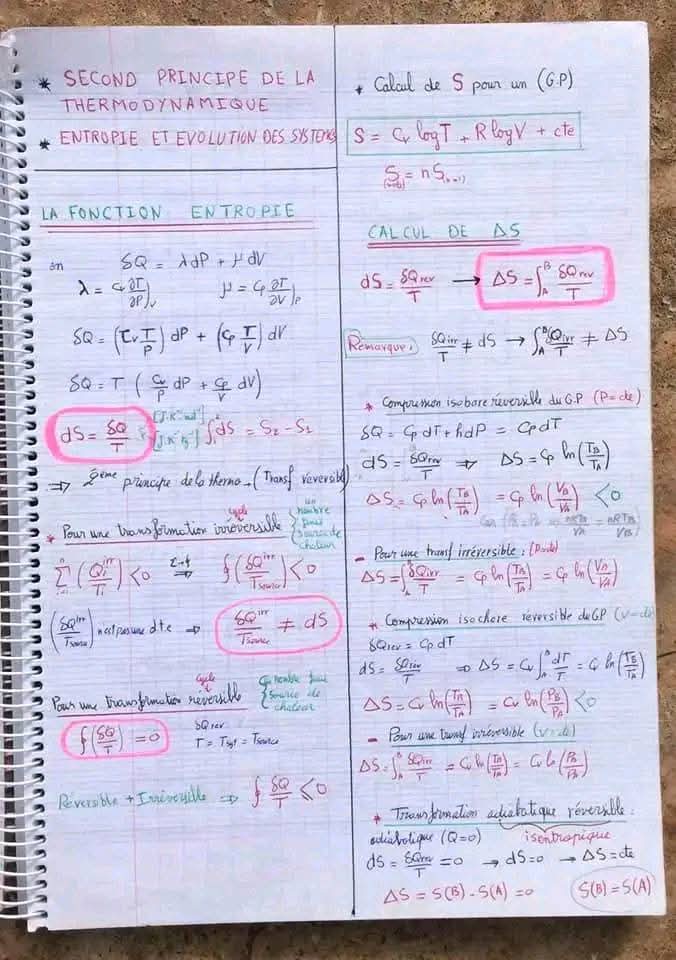 * SECOND PRINCIPE DE LA
THERMODYNAMIQUE
* ENTROPIE ET EVOLUTION DES SYSTEMS
LA FONCTION ENTROPIE
on δQ = λdP + μdV
λ = Cv ∂T/∂P)V μ = Cp ∂T/∂V)P
δQ = (Cv T/P) dP + (Cp T/V) dV
δQ = T (Cv/P dP + Cp/V dV)
dS = δQ/T [J.K⁻¹.mol⁻¹] [J.K⁻¹.kg⁻¹] ∫₁² dS = S₂ - S₁
⇒ 2ème principe de la thermo → (Transf reversible)
cycle
* Pour une transformation irréversible { un nombre fini source de chaleur
Σ (Qi^irr/Ti) < 0 ⇒ ∮ (δQ^irr/Tsource) < 0
(δQ^irr/Tsource) n'est pas une d.t.e ⇒ δQ^irr/Tsource ≠ dS
cycle
Pour une transformation reversible { nombre fini source de chaleur
∮ (δQ/T) = 0 δQrev
T = Tsyt = Tsource
Réversible + Irréversible ⇒ ∮ δQ/T ≤ 0
* Calcul de S pour un (G.P)
S = Cv log T + R log V + cte
S = n S(n=1)
CALCUL DE ΔS
dS = δQrev/T → ΔS = ∫_A^B δQrev/T
Remarque: δQirr/T ≠ dS → ∫_A^B δQirr/T ≠ ΔS
* Compression isobare réversible du G.P (P = cte)
δQ = Cp dT + hdP = Cp dT
dS = δQrev/T ⇒ ΔS = Cp ln(TB/TA)
ΔS = Cp ln(TB/TA) = Cp ln(VB/VA) < 0
- Pour une transf irréversible:
ΔS = ∫_A^B δQirr/T = Cp ln(TB/TA) = Cp ln(VB/VA)
* Compression isochore réversible du GP (V=cte)
δQrev = Cp dT
dS = δQrev/T ⇒ ΔS = Cv ∫_A^B dT/T = Cv ln(TB/TA)
ΔS = Cv ln(TB/TA) = Cv ln(PB/PA) < 0
- Pour une transf irréversible (V=cte)
ΔS = ∫_A^B δQirr/T = Cv ln(TB/TA) = Cv ln(PB/PA)
* Transformation adiabatique réversible:
adiabatique (Q=0) isentropique
dS = δQrev/T = 0 → dS=0 → ΔS=cte
ΔS = S(B) - S(A) = 0 S(B) = S(A)